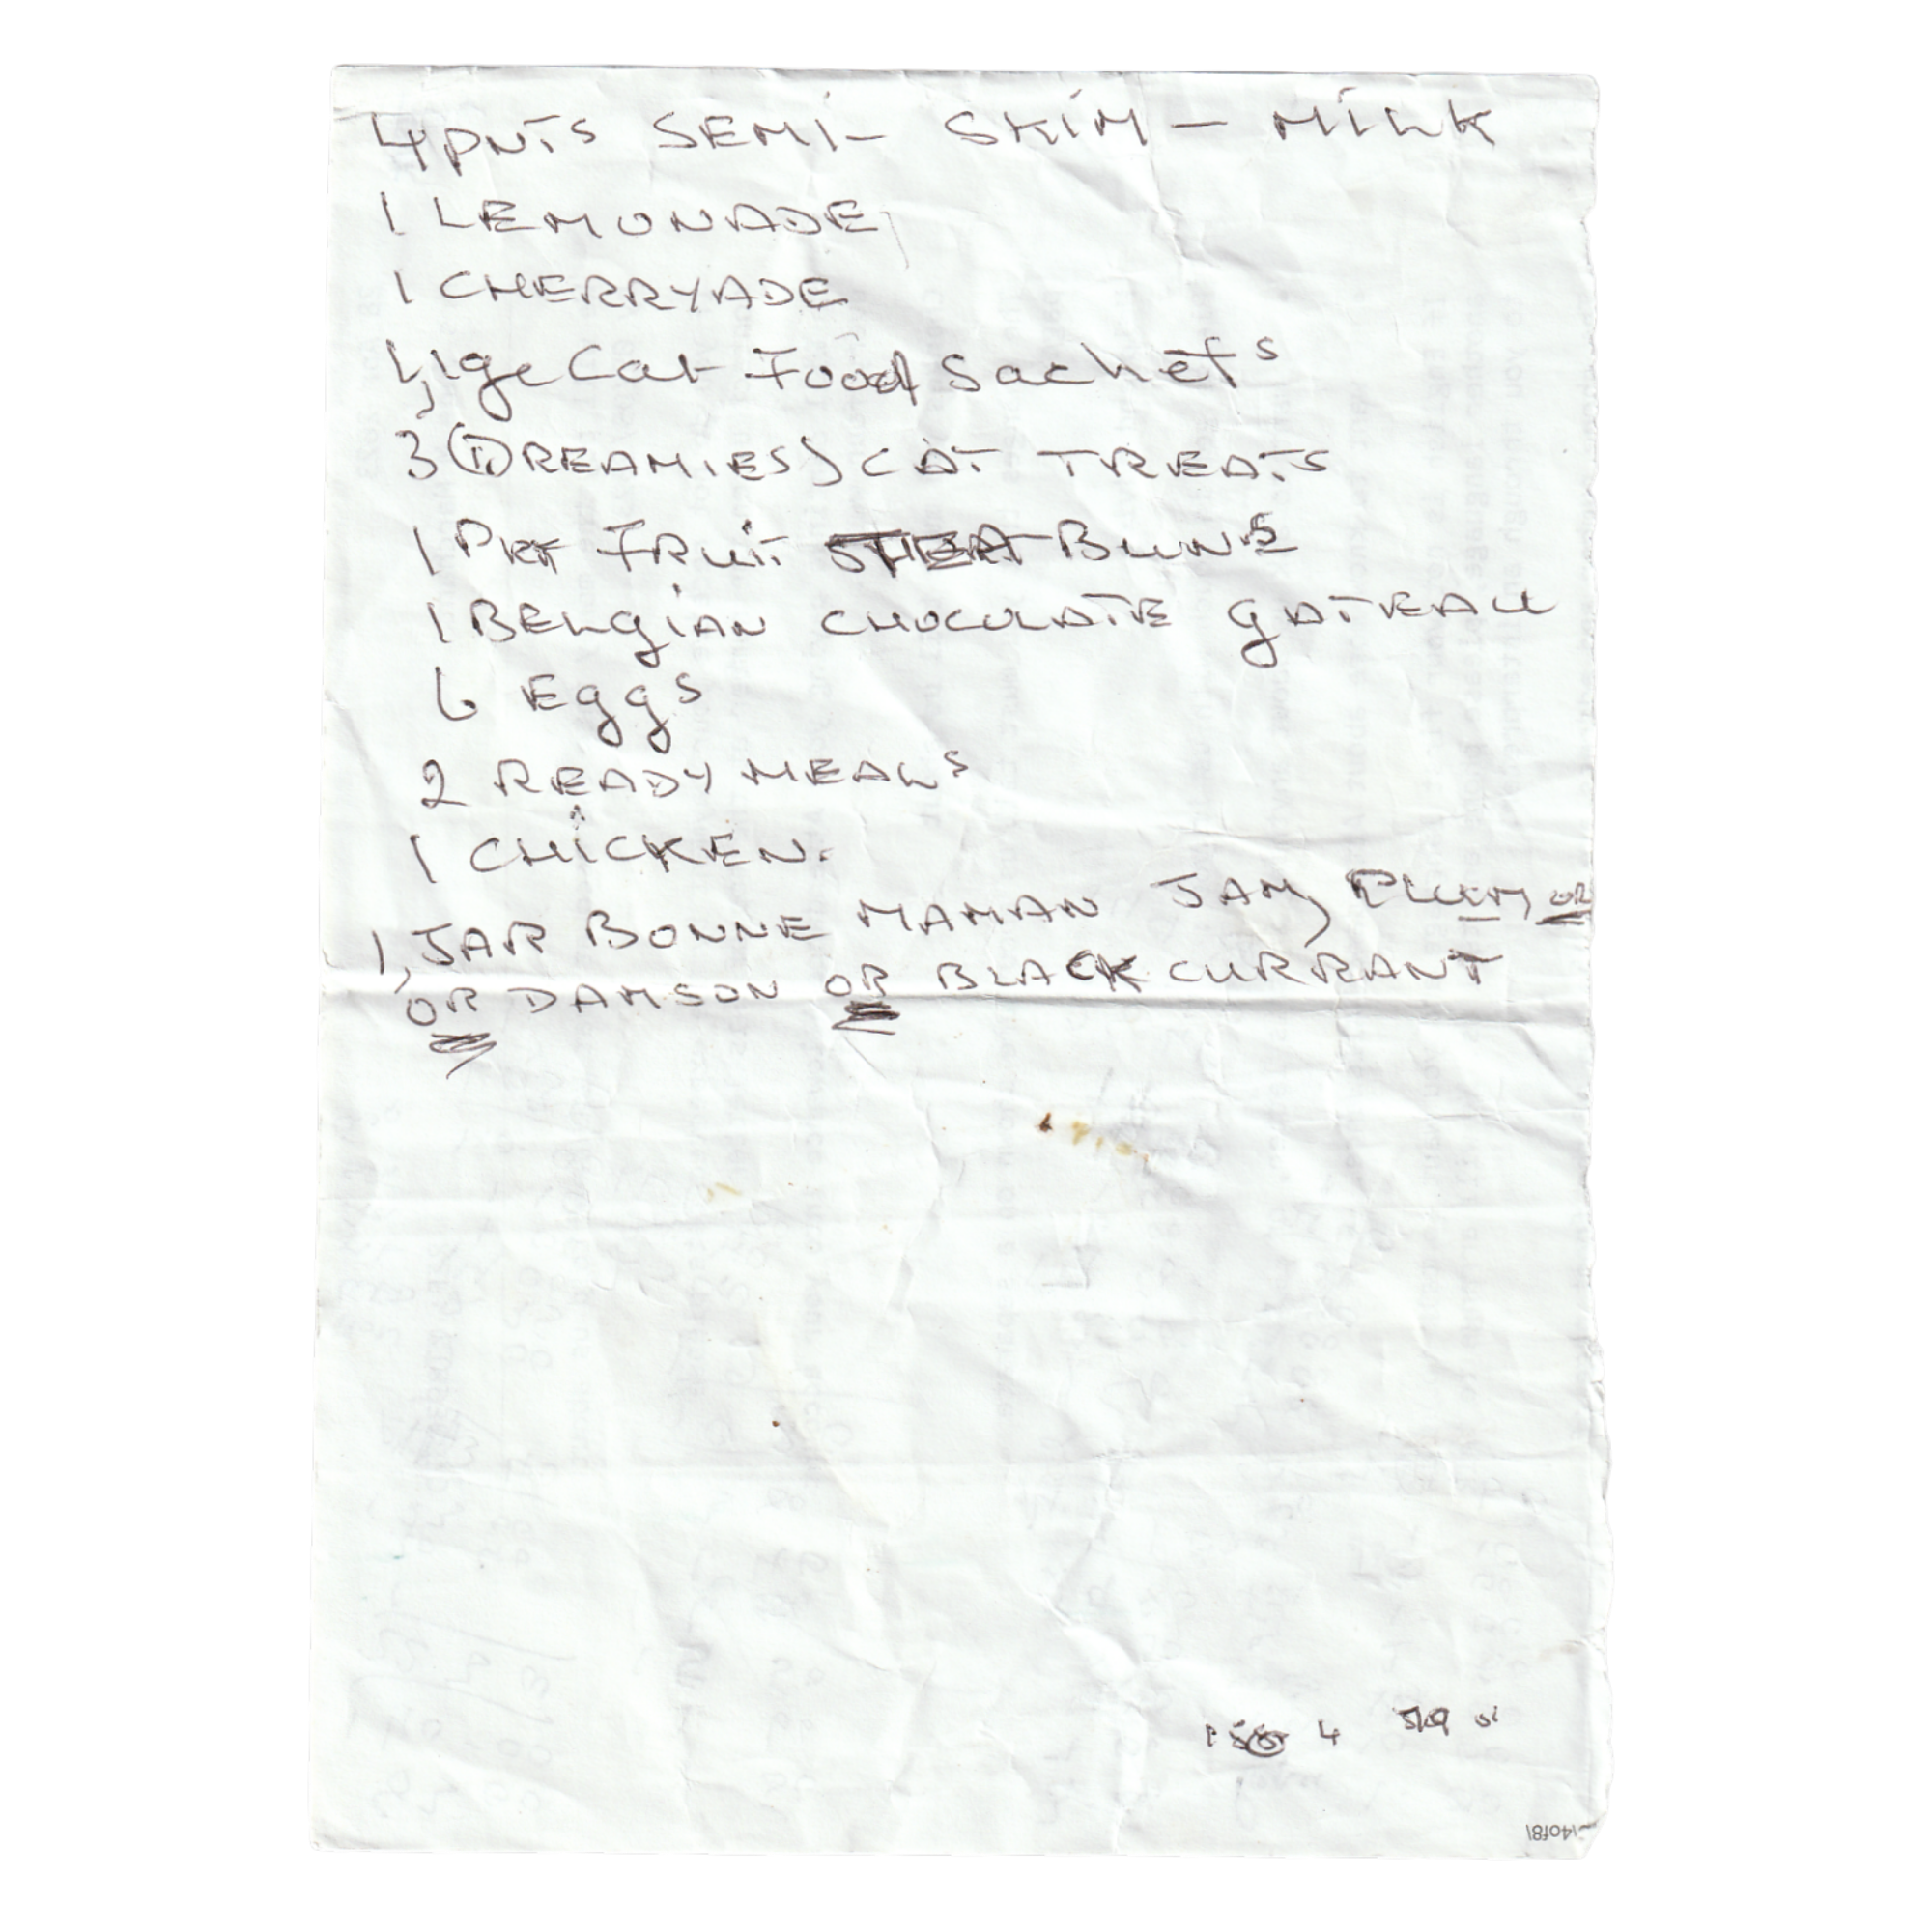 4 pnts SEMI- SKIM - MILK
1 LEMONADE
1 CHERRYADE
1, lge Cat Food Sachets
3 (DREAMIES) CAT TREATS
1 PKT FRUIT BUNS
1 BELGIAN CHOCOLATE gATEAU
6 Eggs
2 READY MEALS
1 CHICKEN.
1, JAR BONNE MAMAN JAM, PLUM, OR
OR DAMSON OR BLACK CURRANT
4